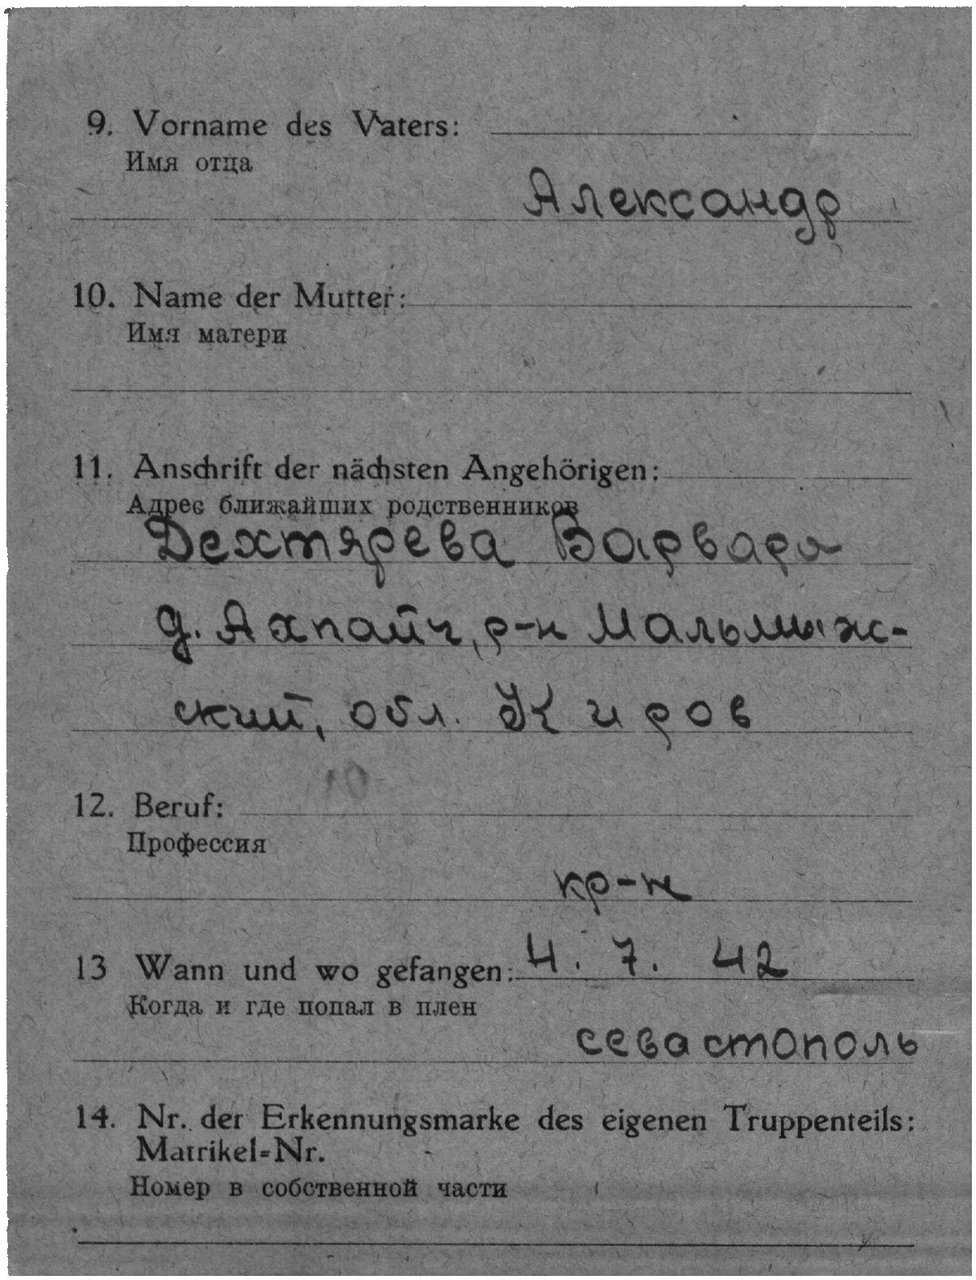 9. Vorname des Vaters:
Имя отца
Александр
10. Name der Mutter:
Имя матери
11. Anschrift der nächsten Angehörigen:
Адрес ближайших родственников
Дехтярева Варвара
д. Ахпайч, р-н Малмыж-
ский, обл. Киров
12. Beruf:
Профессия
кр-н
13 Wann und wo gefangen: 4. 7. 42
Когда и где попал в плен
севастополь
14. Nr. der Erkennungsmarke des eigenen Truppenteils:
Matrikel-Nr.
Номер в собственной части